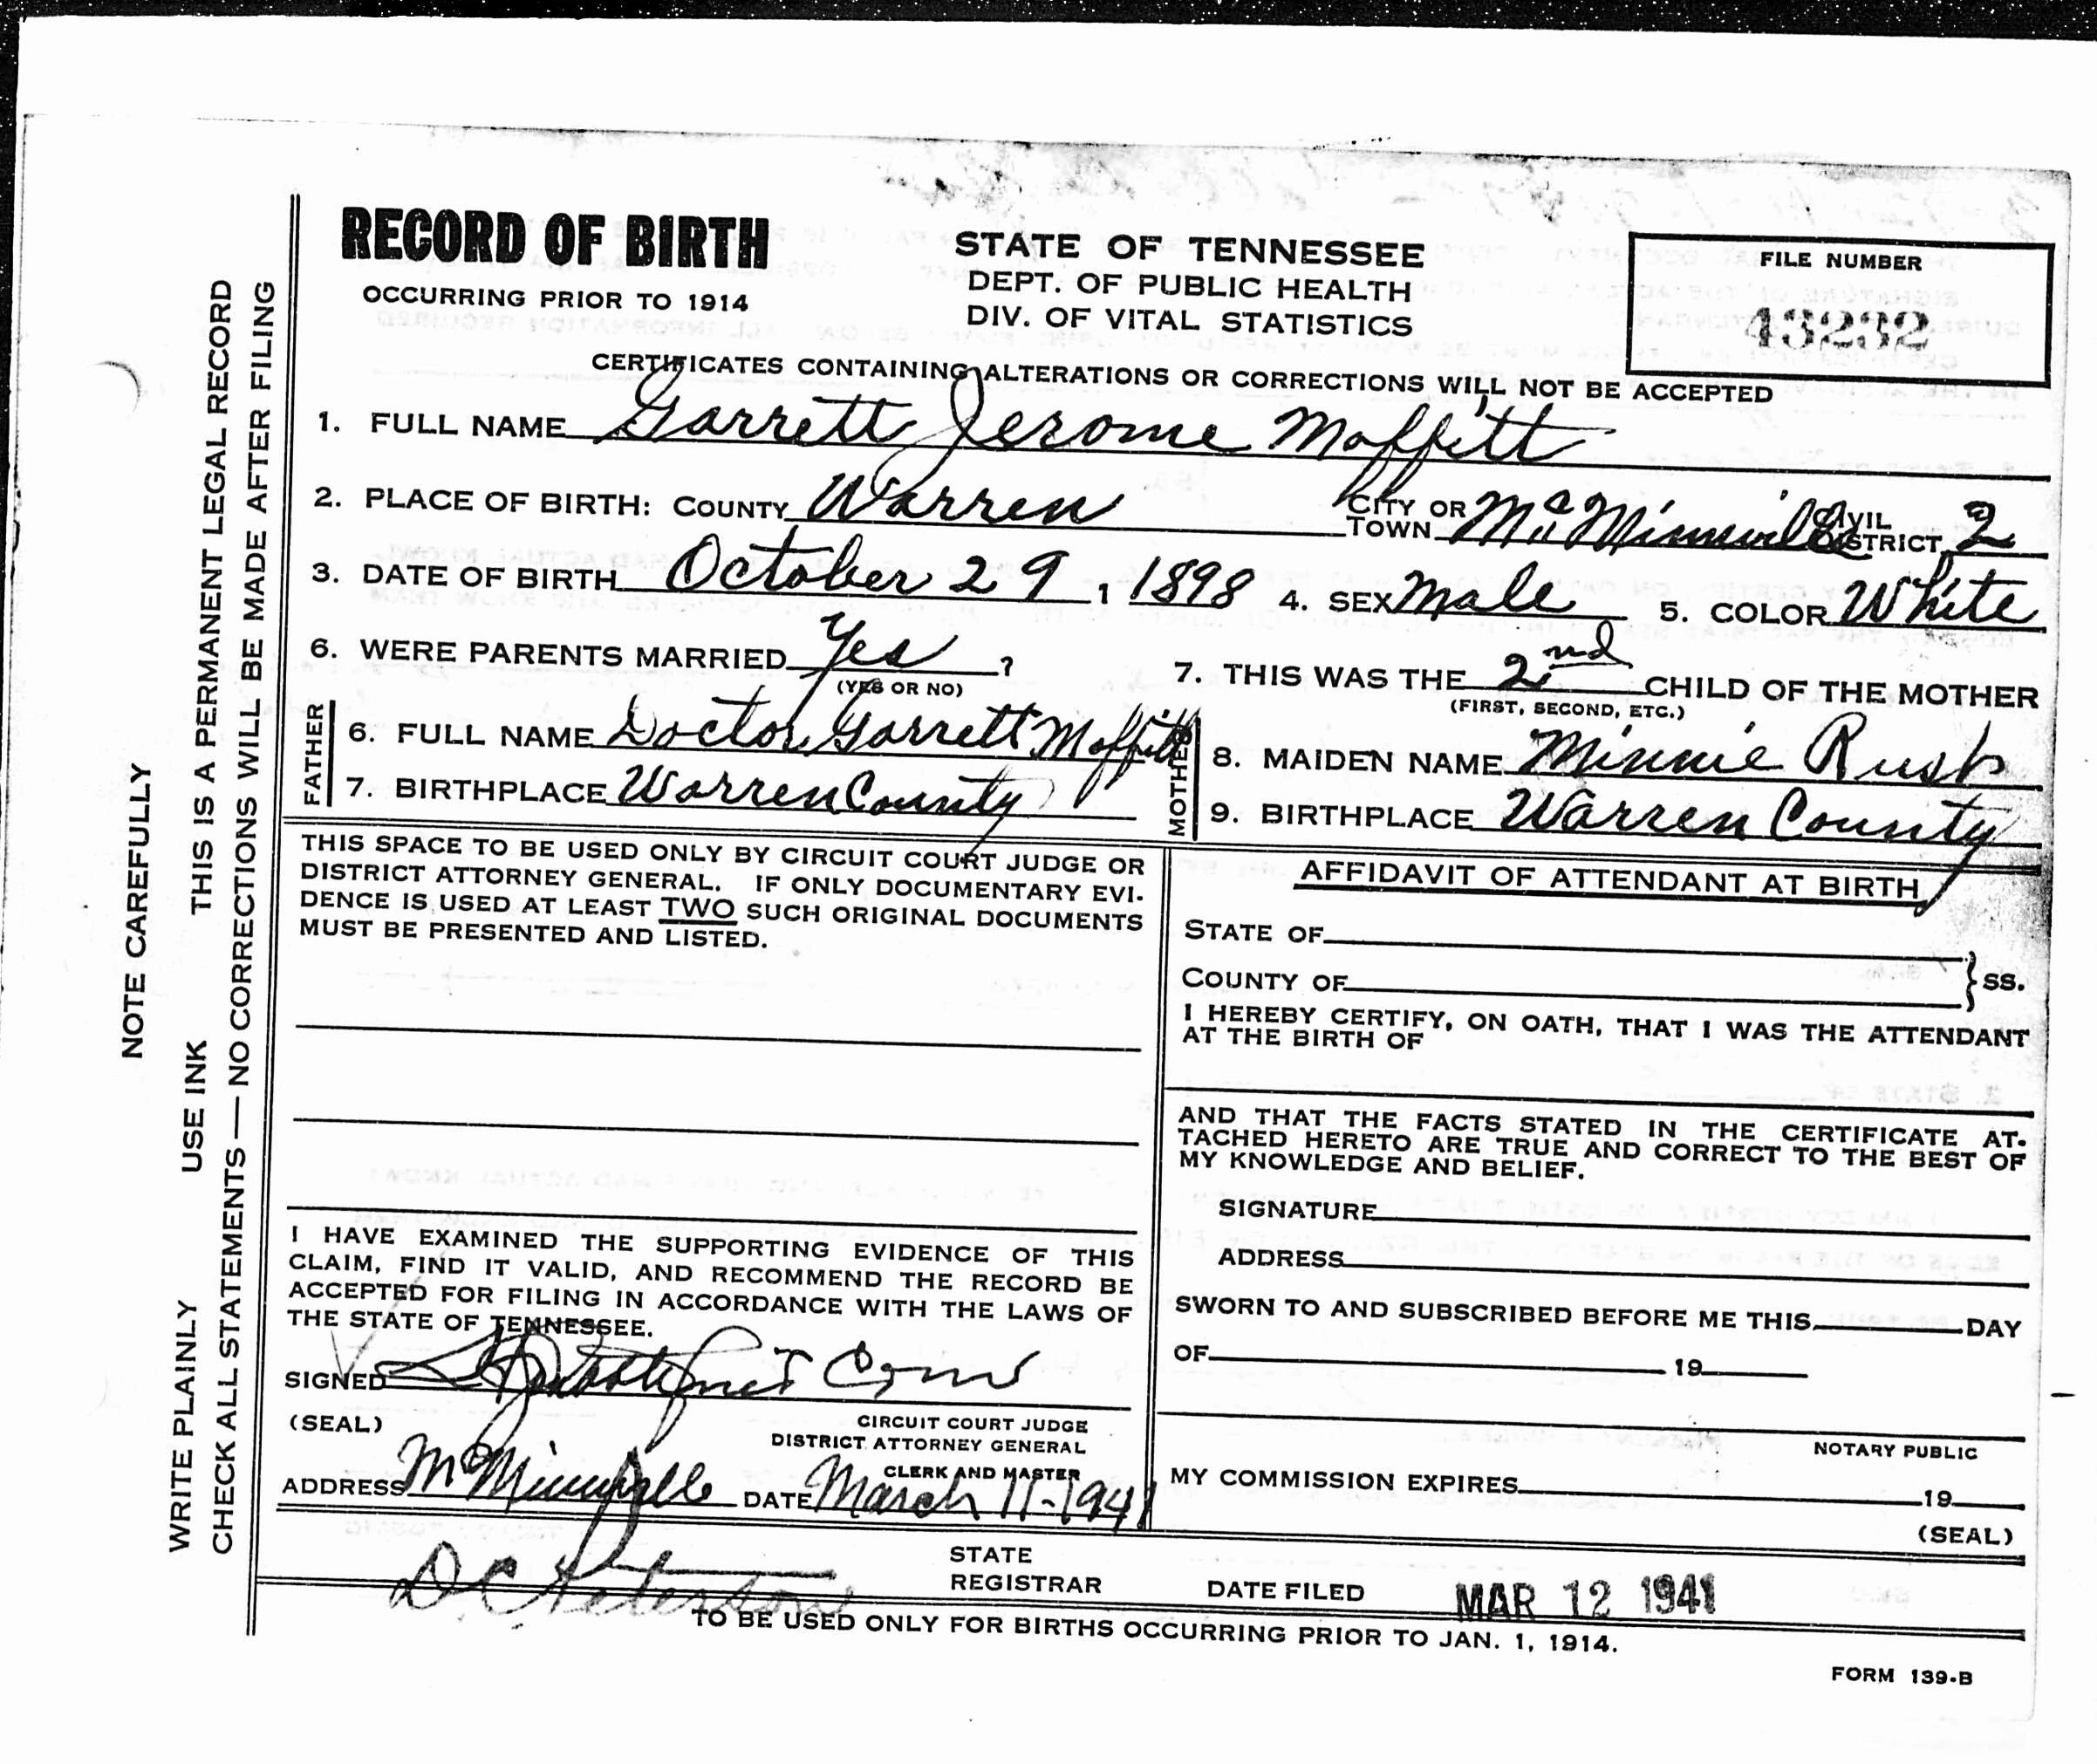 RECORD OF BIRTH
OCCURRING PRIOR TO 1914
STATE OF TENNESSEE
DEPT. OF PUBLIC HEALTH
DIV. OF VITAL STATISTICS
FILE NUMBER
43232
CERTIFICATES CONTAINING ALTERATIONS OR CORRECTIONS WILL NOT BE ACCEPTED
1. FULL NAME Garrett Jerome Moffitt
2. PLACE OF BIRTH: COUNTY Warren CITY OR TOWN McMinnville CIVIL DISTRICT 2
3. DATE OF BIRTH October 29, 1898 4. SEX Male 5. COLOR White
6. WERE PARENTS MARRIED Yes ? 7. THIS WAS THE 2nd CHILD OF THE MOTHER
(YES OR NO) (FIRST, SECOND, ETC.)
FATHER
6. FULL NAME Doctor Garrett Moffitt
7. BIRTHPLACE Warren County
MOTHER
8. MAIDEN NAME Minnie Rust
9. BIRTHPLACE Warren County
THIS SPACE TO BE USED ONLY BY CIRCUIT COURT JUDGE OR
DISTRICT ATTORNEY GENERAL. IF ONLY DOCUMENTARY EVI-
DENCE IS USED AT LEAST TWO SUCH ORIGINAL DOCUMENTS
MUST BE PRESENTED AND LISTED.
I HAVE EXAMINED THE SUPPORTING EVIDENCE OF THIS
CLAIM, FIND IT VALID, AND RECOMMEND THE RECORD BE
ACCEPTED FOR FILING IN ACCORDANCE WITH THE LAWS OF
THE STATE OF TENNESSEE.
SIGNED
(SEAL)
CIRCUIT COURT JUDGE
DISTRICT ATTORNEY GENERAL
CLERK AND MASTER
ADDRESS McMinnville DATE March 11-1941
AFFIDAVIT OF ATTENDANT AT BIRTH
STATE OF
COUNTY OF } SS.
I HEREBY CERTIFY, ON OATH, THAT I WAS THE ATTENDANT
AT THE BIRTH OF
AND THAT THE FACTS STATED IN THE CERTIFICATE AT-
TACHED HERETO ARE TRUE AND CORRECT TO THE BEST OF
MY KNOWLEDGE AND BELIEF.
SIGNATURE
ADDRESS
SWORN TO AND SUBSCRIBED BEFORE ME THIS DAY
OF 19
NOTARY PUBLIC
MY COMMISSION EXPIRES 19
(SEAL)
D C Peterson STATE
REGISTRAR
DATE FILED MAR 12 1941
TO BE USED ONLY FOR BIRTHS OCCURRING PRIOR TO JAN. 1, 1914.
FORM 139-B
NOTE CAREFULLY
WRITE PLAINLY USE INK THIS IS A PERMANENT LEGAL RECORD
CHECK ALL STATEMENTS—NO CORRECTIONS WILL BE MADE AFTER FILING